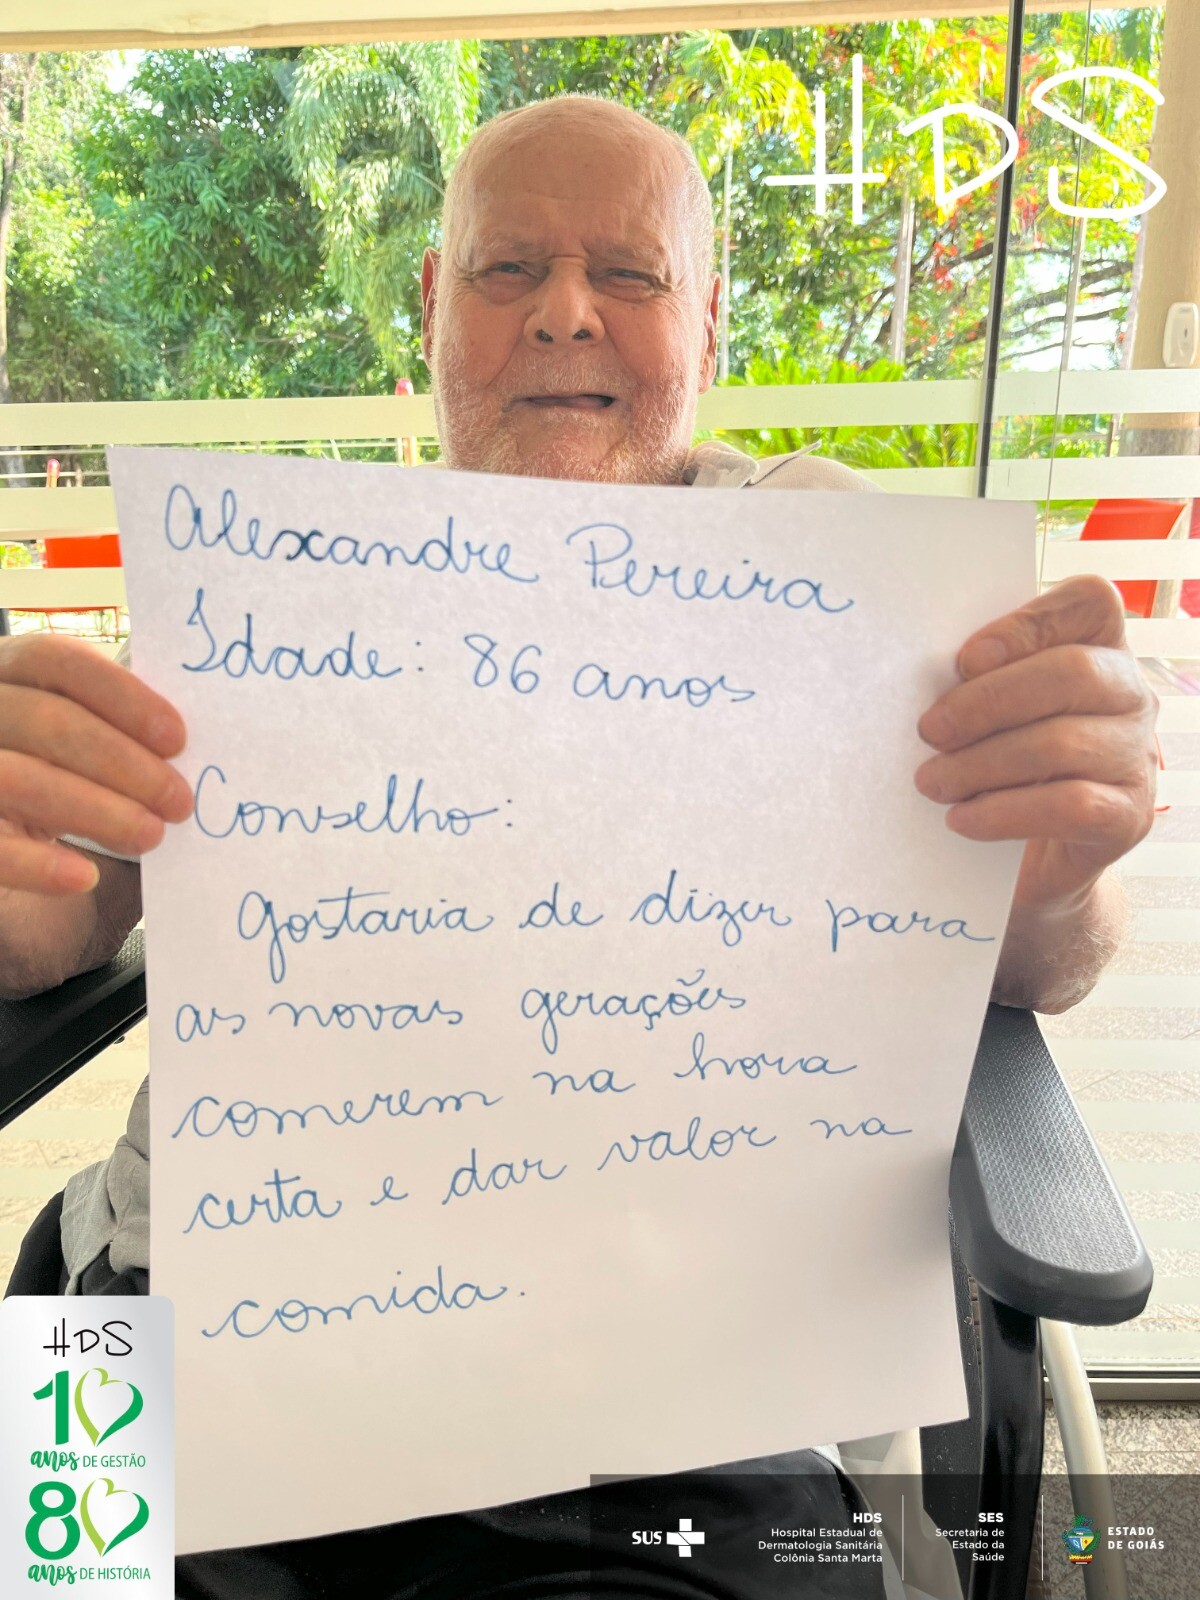 HDS
Alexandre Pereira
Idade: 86 anos
Conselho:
Gostaria de dizer para
as novas gerações
comerem na hora
certa e dar valor na
comida.
HDS
10
anos DE GESTÃO
80
anos DE HISTÓRIA
SUS
HDS
Hospital Estadual de
Dermatologia Sanitária
Colônia Santa Marta
SES
Secretaria de
Estado da
Saúde
ESTADO
DE GOIÁS